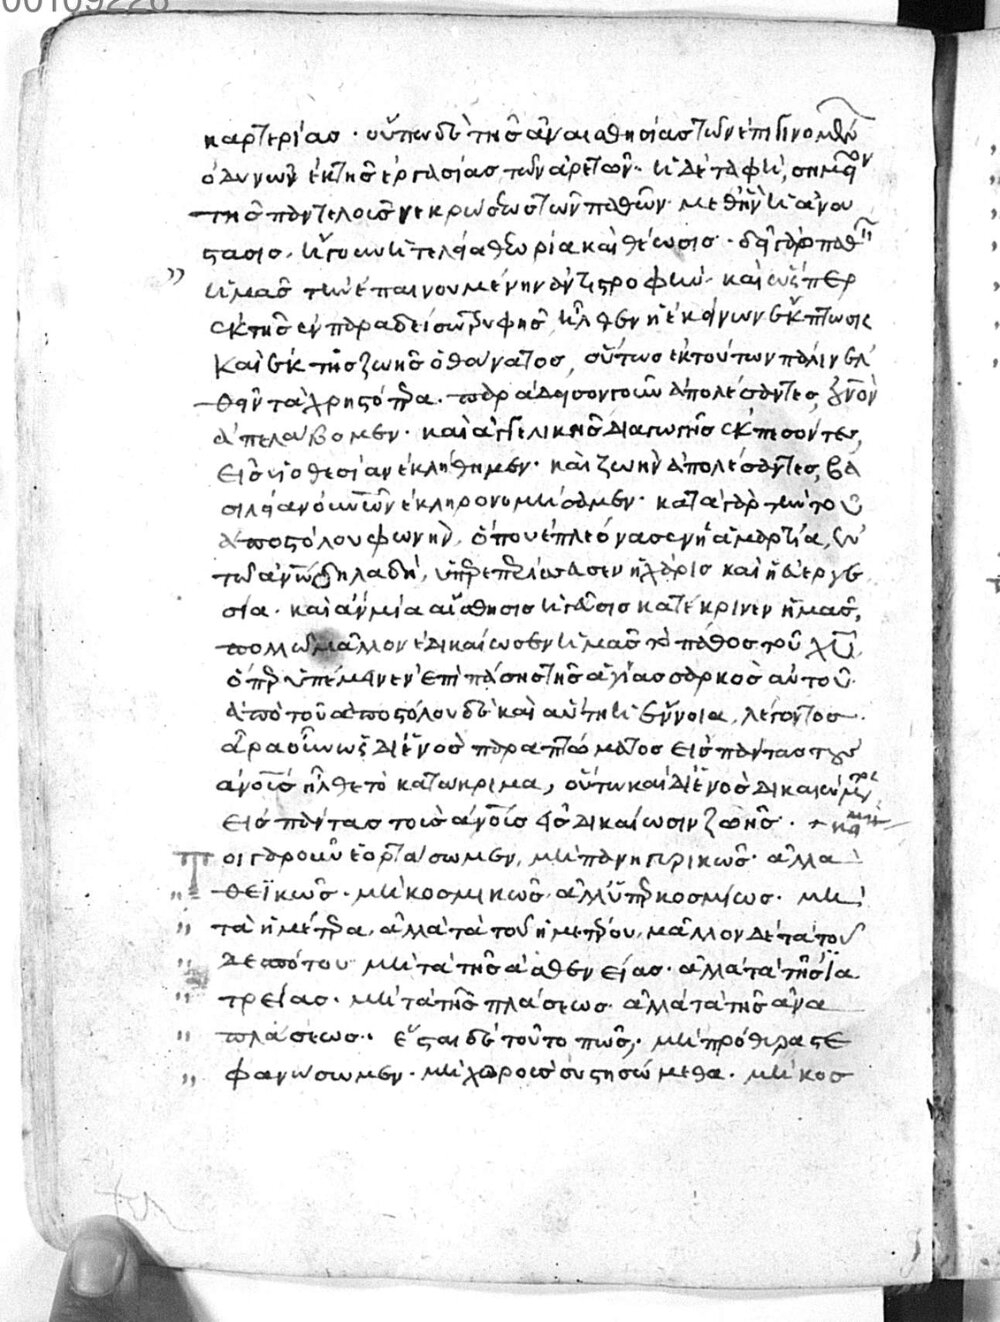 00109228
καρτερίας· οὔπω δὲ τῆς ἀναισθησίας τῶν ἐπιγινομένων
ὀδυνῶν ἐκ τῆς ἐργασίας τῶν ἀρετῶν· ἡ δὲ ταφὴ, σημαντικὸν
τῆς παντελοῦς νεκρώσεως τῶν παθῶν· μεθ' ἣν ἡ ἀνά
στασις, ἤγουν ἡ τελεία θεωρία καὶ θέωσις·
ἡμᾶς τὴν ἐπαινουμένην ἀντιστροφήν· καὶ ὥσπερ
ἐκ τῆς ἐν παραδείσω τρυφῆς, ἦλθεν ἡ ἐκείνων ἔκπτωσις
καὶ ἐκ τῆς ζωῆς ὁ θάνατος, οὕτως ἐκ τούτων πάλιν ἐλ
θεῖν τὰ χρηστότερα· παράδεισον γοῦν ἀπολέσαντες, οὐνὸν
ἀπελάβομεν· καὶ ἀγγελικῆς διαγωγῆς ἐκπεσόντες,
εἰς υἱοθεσίαν ἐκλήθημεν· καὶ ζωὴν ἀπολέσαντες, βα
σιλείαν οὐνῶν ἐκληρονομήσαμεν· κατὰ γὰρ τὴν τοῦ
ἀποστόλου φωνὴν, ὅπου ἐπλεόνασεν ἡ ἁμαρτία, ἐν
τῶ ἀνῶ δηλαδὴ, ὑπερεπερίσσευσεν ἡ χάρις καὶ ἡ εὐεργε
σία· καὶ ἂν μία αἴσθησις ἡ γεῦσις κατέκρινεν ἡμᾶς,
πολλῶ μᾶλλον ἐδικαίωσεν ἡμᾶς τὸ πάθος τοῦ χῦ,
ὅπερ ὑπέμεινεν ἐπὶ πάσης τῆς ἁγίας σαρκὸς αὐτοῦ·
ἀπὸ τοῦ ἀποστόλου δὲ καὶ αὕτη ἡ ἔννοια, λέγοντος·
ἄρα οὖν ὡς δι' ἑνὸς παραπτώματος εἰς πάντας τοὺς
ἀνοῦς ἦλθε τὸ κατάκριμα, οὕτω καὶ δι' ἑνὸς δικαιώματος
εἰς πάντας τοὺς ἀνοῦς εἰς δικαίωσιν ζωῆς·
Τοιγαροῦν ἑορτάσωμεν, μὴ πανηγυρικῶς· ἀλλὰ
θεϊκῶς· μὴ κοσμικῶς, ἀλλ' ὑπερκοσμίως· μὴ
τὰ ἡμέτερα, ἀλλὰ τὰ τοῦ ἡμετέρου, μᾶλλον δὲ τὰ τοῦ
δεσπότου μὴ τὰ τῆς ἀσθενείας· ἀλλὰ τὰ τῆς ἰα
τρείας· μὴ τὰ τῆς πλάσεως· ἀλλὰ τὰ τῆς ἀνα
πλάσεως· ἔσται δὲ τοῦτο πῶς; μὴ πρόθυρα στε
φανώσωμεν· μὴ χοροὺς συστησώμεθα· μὴ κοσ